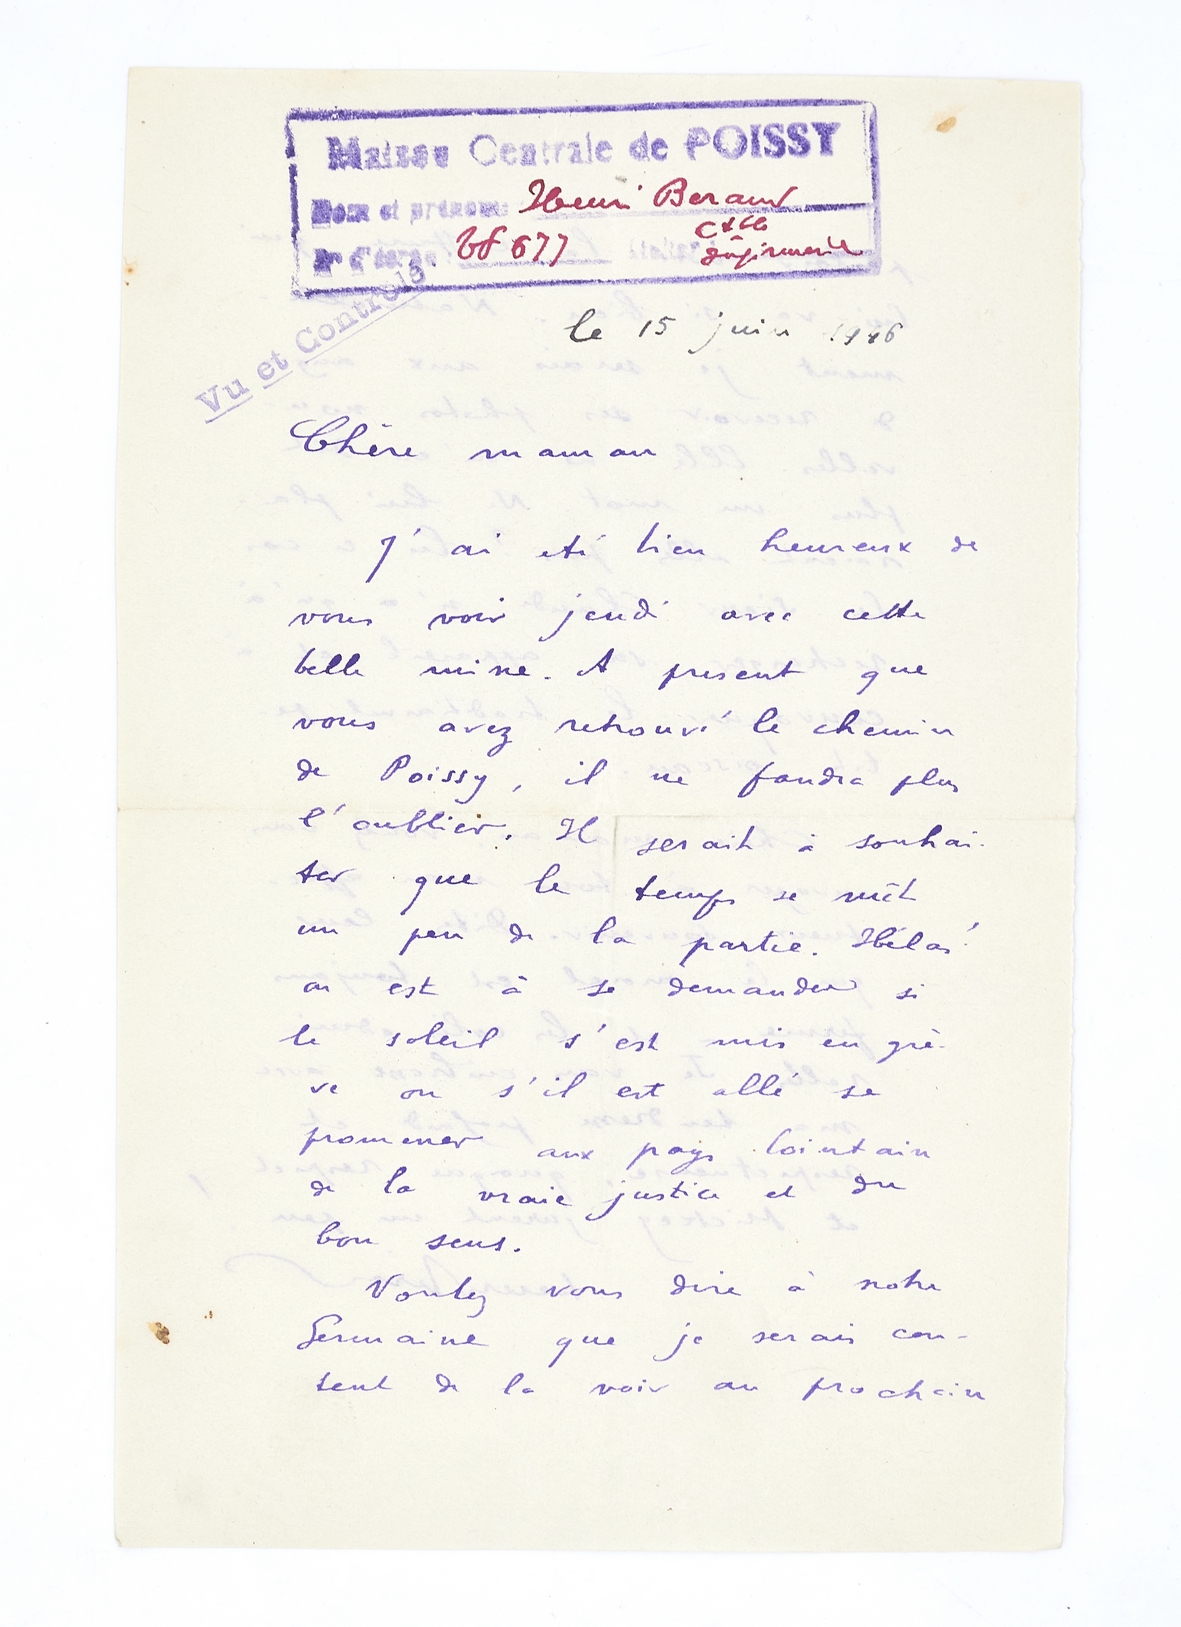 Maison Centrale de POISSY
Nom et prénoms Henri Beraud
N° d'écrou 677
Infirmerie
Vu et Controlé
le 15 juin 1946
Chère maman
J'ai été bien heureux de
vous voir jeudi avec cette
belle mine. A present que
vous avez retrouvé le chemin
de Poissy, il ne faudra plus
l'oublier. Il serait à souhai-
ter que le temps se mît
un peu de la partie. Hélas!
on est à se demander si
le soleil s'est mis en grè-
ve ou s'il est allé se
promener aux pays lointain
de la vraie justice et du
bon sens.
Voulez vous dire à notre
Germaine que je serais con-
tent de la voir au prochain